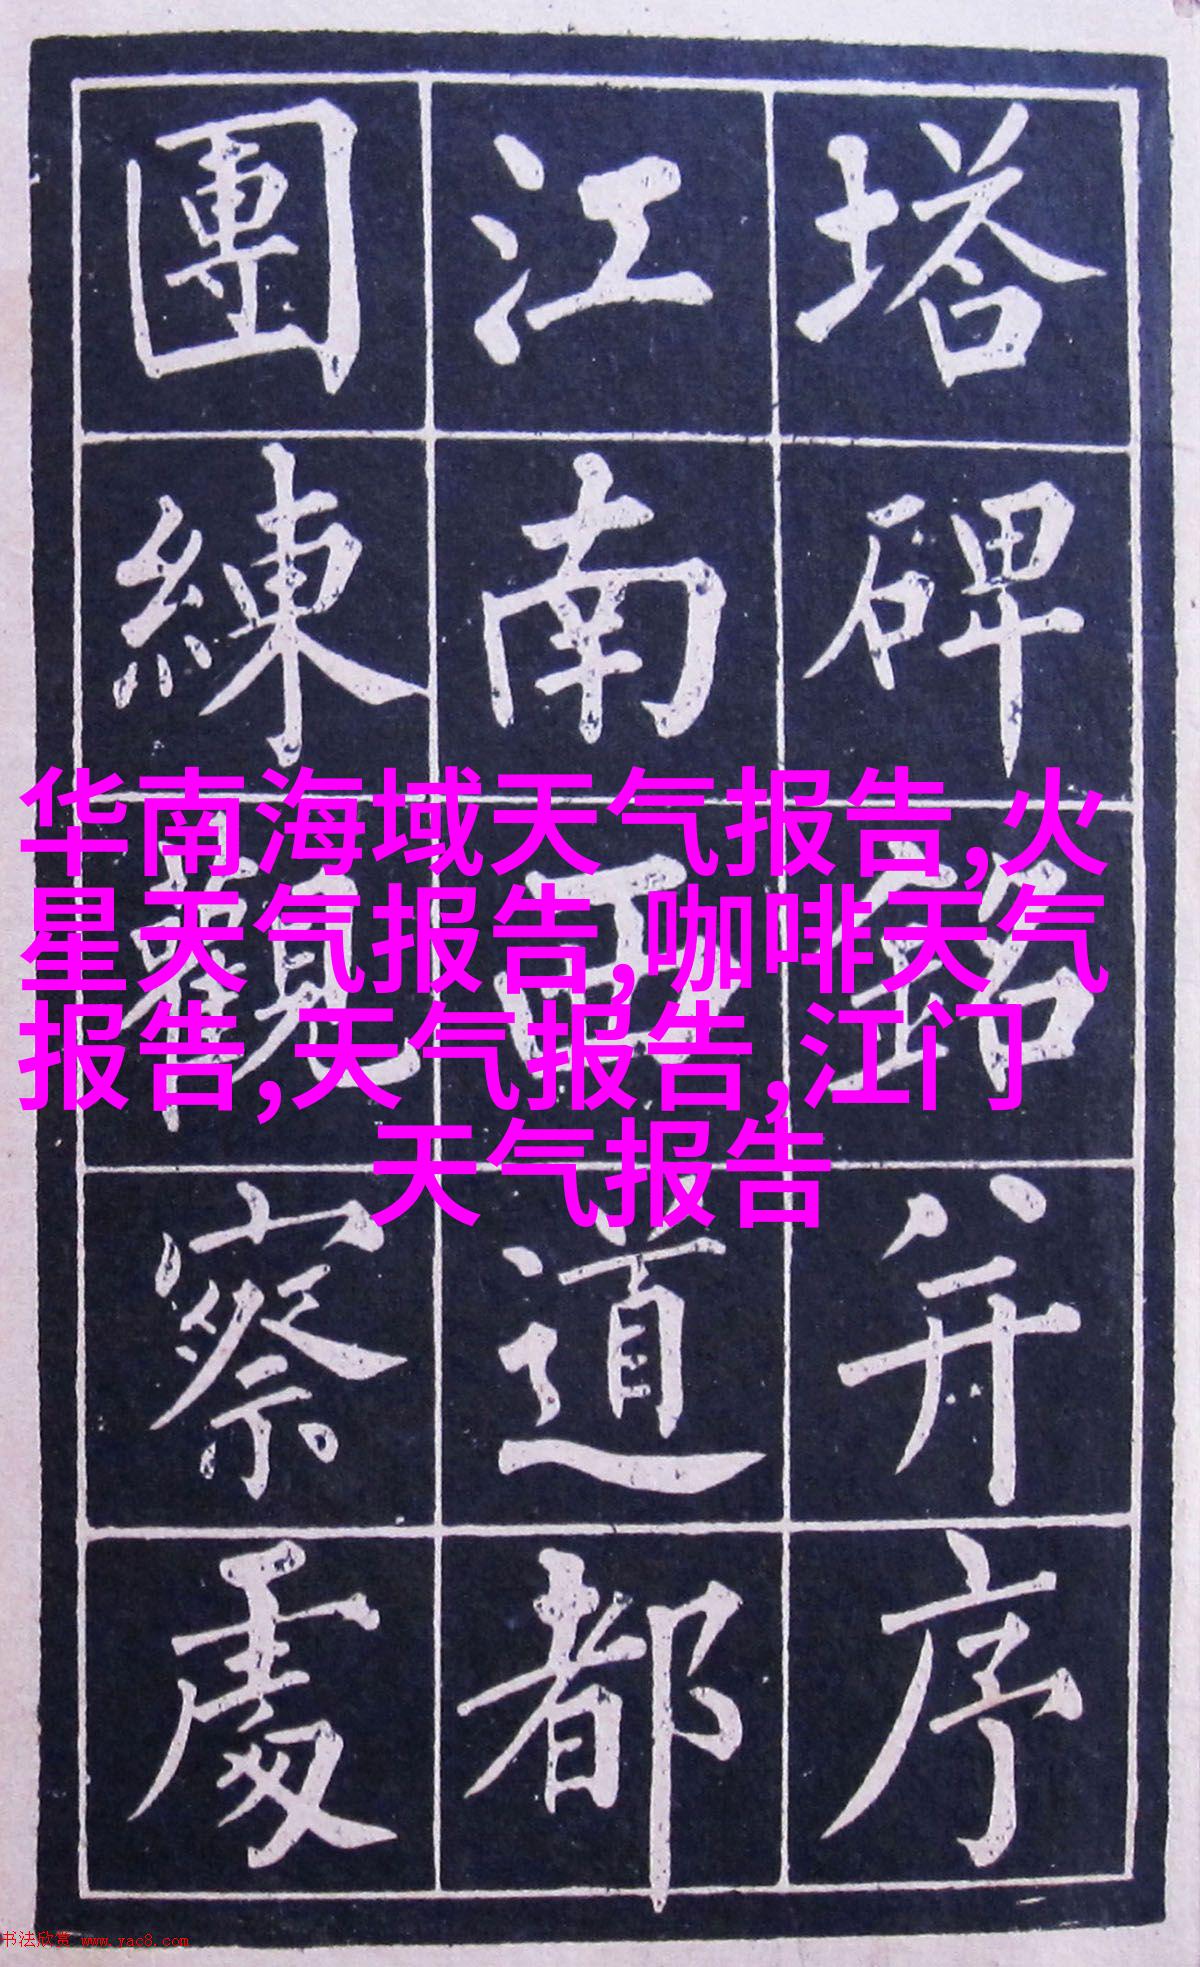 塔碑銘并序
江南西道都
團練觀察處
华南海域天气报告,火
星天气报告,咖啡天气
报告,天气报告,江门
天气报告
书法欣赏 www.yac8.com